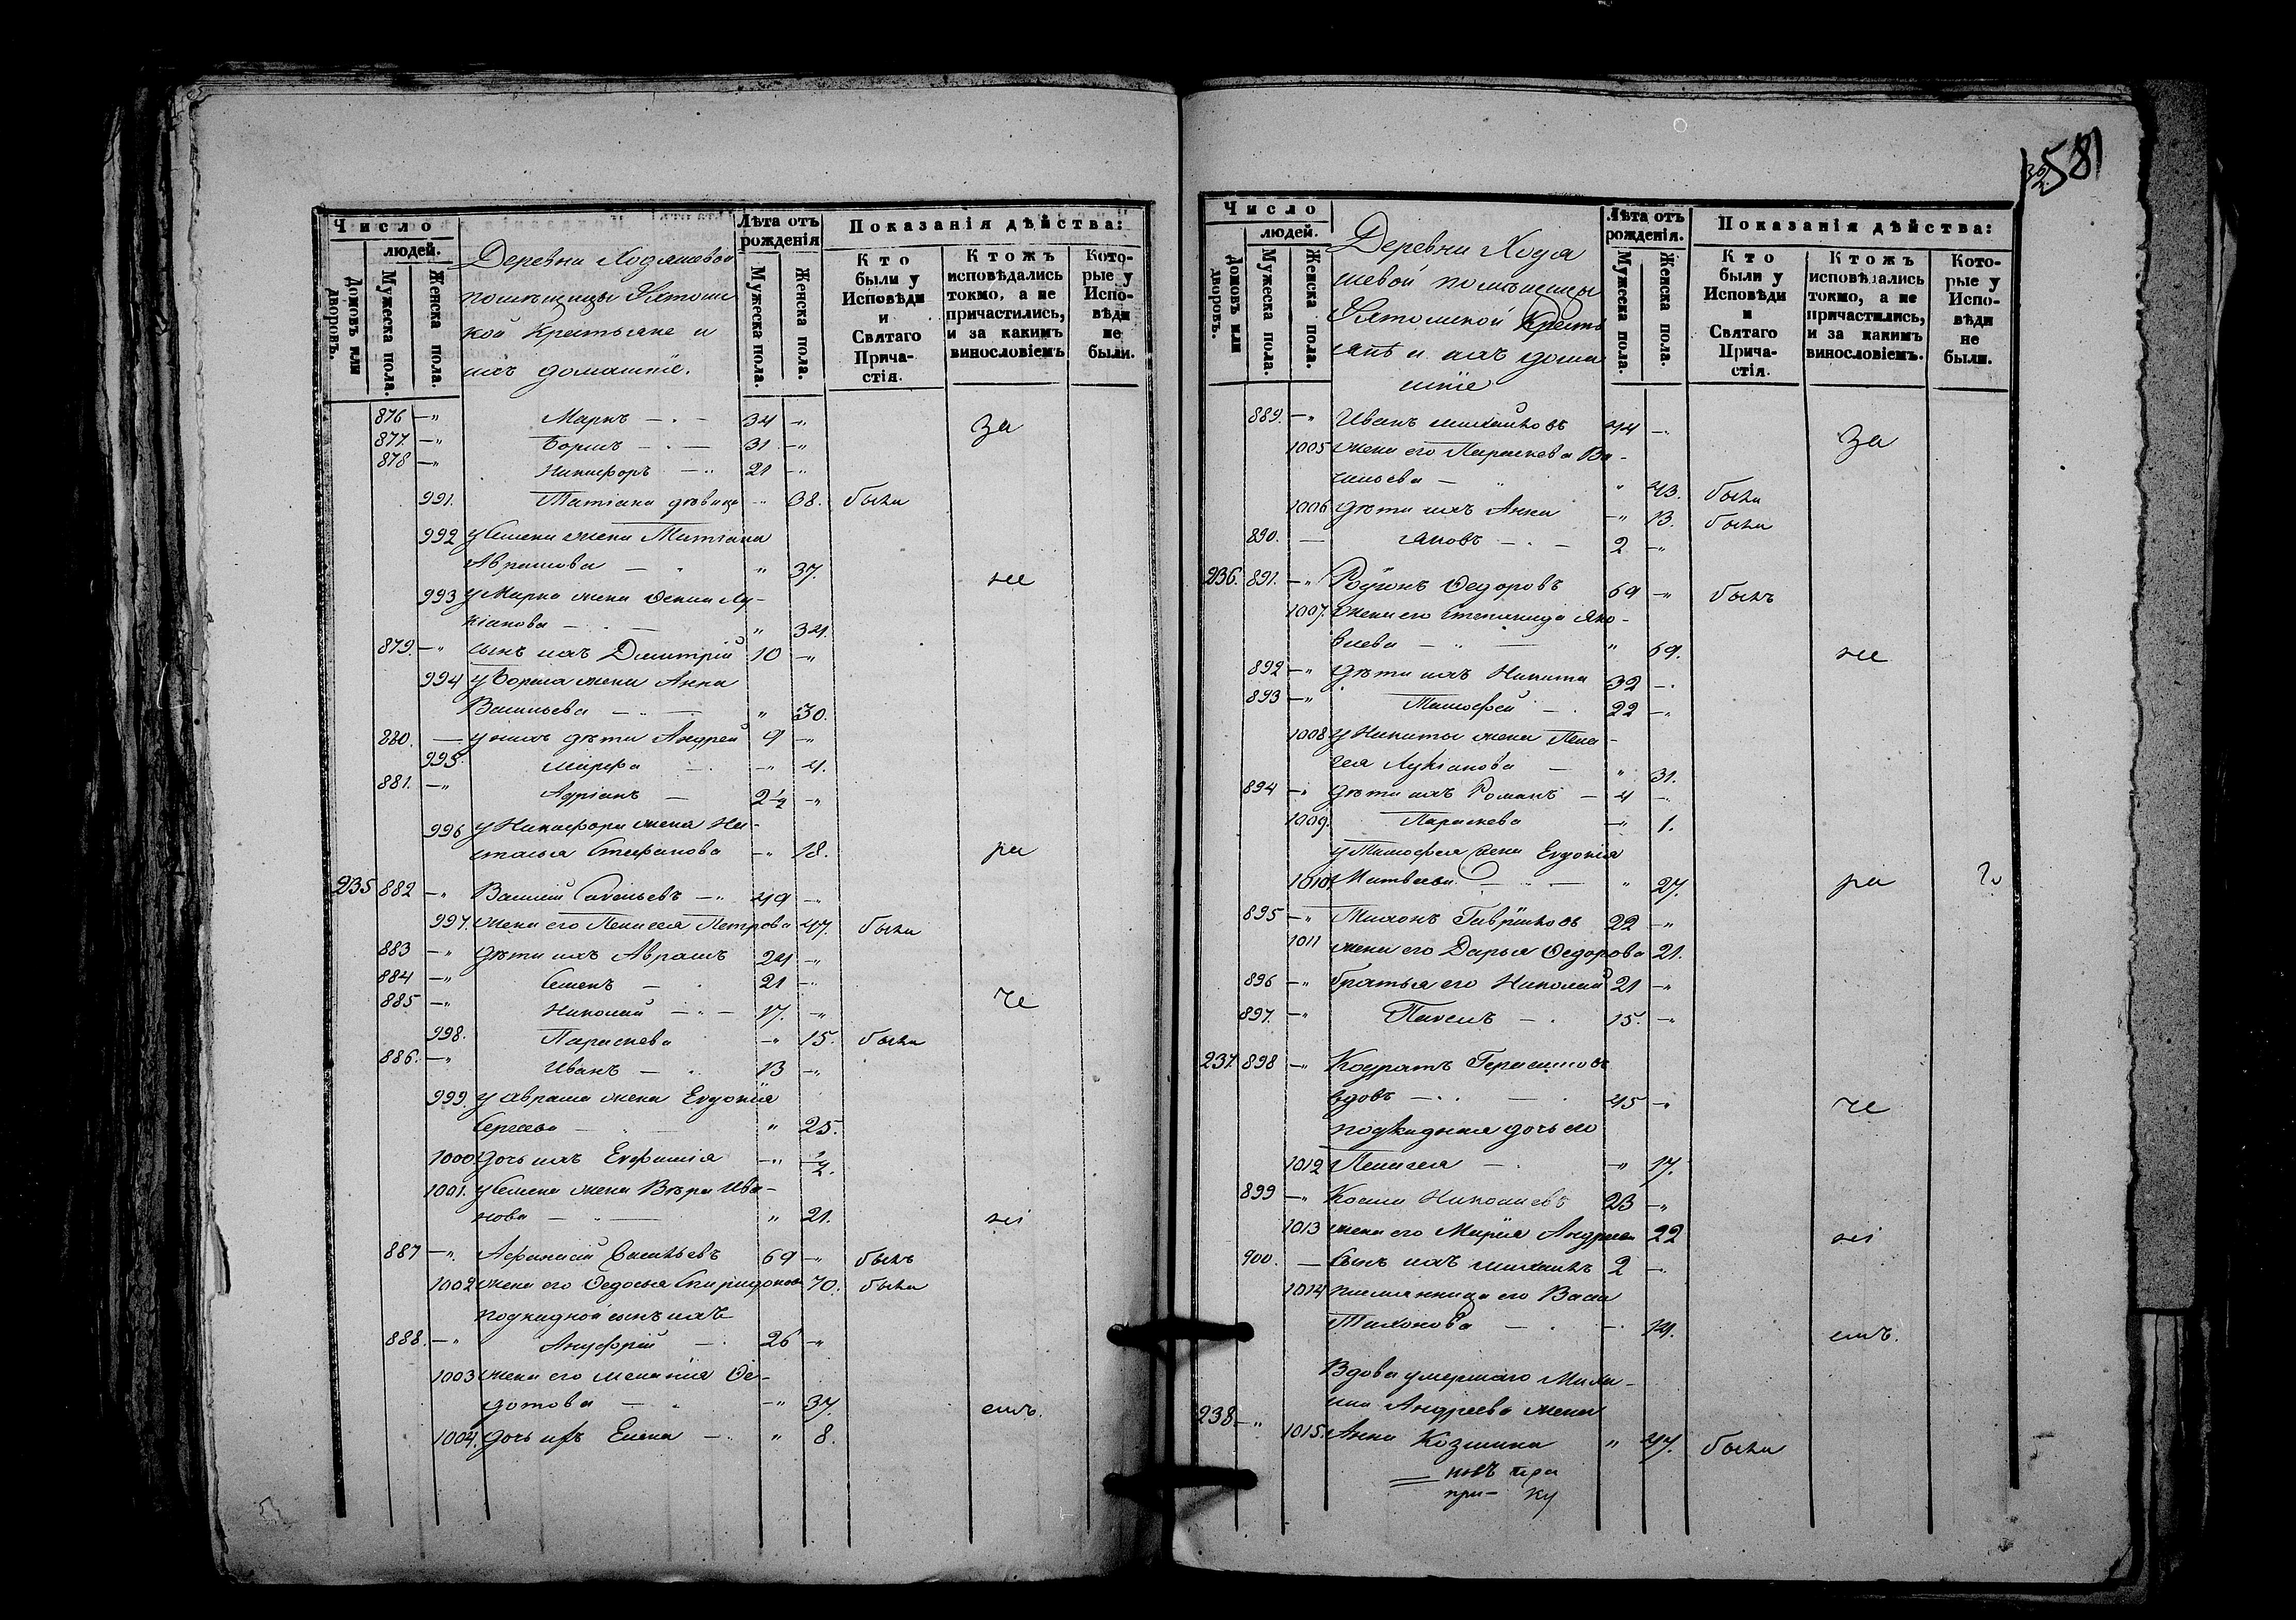 258
Число
людей.
Домовъ или дворовъ.
Мужеска пола.
Женска пола.
Деревни Ходяшевой
помѣщицы
кой Крестьяне и
ихъ домашніе.
Лѣта отъ рожденія
Мужеска пола.
Женска пола.
Показанія дѣйства:
Кто были у Исповѣди и Святаго Причастія.
Ктожъ исповѣдались токмо, а не причастились, и за какимъ винословіемъ
Которые у Исповѣди не были.
876 —„ Маркъ — 34 —„ За
877. —„ Борисъ — 31 —„
878 —„ Никифоръ —„ 21 —„
991. Татіана дѣвица „ 38. была
992 у Семена жена Татіана
Аврамова — „ 37. не
993 у Марка жена Ксенія Лу-
кіанова — „ 34.
879. —„ сынъ ихъ Димитрій 10 —„
994 у Бориса жена Анна
Васильева — „ 30.
880. — у нихъ дѣти Андрей 9 —„
995. Марфа —„ 4.
881. —„ Адріанъ — 2½ —„
996 у Никифора жена На-
талья Стефанова —„ 18. ра
235 882 —„ Василій Савельевъ —„ 49 —„
997. жена его Пелагея Петрова 47. была
883 —„ дѣти ихъ Аврамъ 24 —„
884 —„ Семенъ — 21 —„
885 —„ Николай — 17. —„ че
998. Параскева —„ 15. была
886. —„ Иванъ — 13 —„
999. у Аврама жена Евдокія
Сергеева — „ 25.
1000. дочь ихъ Евфимія —„ ½.
1001. у Семена жена Вѣра Ива-
нова — „ 21. ні
887 —„ Афанасій Савельевъ 69 —„ былъ
1002 жена его Ѳедосья Спиридонова 70. была
подкидной сынъ ихъ
888. —„ Ануфрій — 26 —„
1003 жена его Меланія Ѳе-
дотова — —„ 37. емъ.
1004. дочь ихъ Елена — „ 8.
Число
людей.
Домовъ или дворовъ.
Мужеска пола.
Женска пола.
Деревни Ходя
шевой помѣщицы
Кресть
янѣ и ихъ дома
шніе
Лѣта отъ рожденія.
Мужеска пола.
Женска пола.
Показанія дѣйства:
Кто были у Исповѣди и Святаго Причастія.
Ктожъ исповѣдались токмо, а не причастились, и за какимъ винословіемъ.
Которые у Исповѣди не были.
889. —„ Иванъ Михайловъ 44 —„ За
1005 жена его Параскева Ва-
сильева — „ 43. была
1006 дѣти ихъ Анна —„ 13. была
890. — Яковъ — 2 —„
236. 891. —„ Родіонъ Ѳедоровъ 69 —„ былъ
1007. жена его Степанида Яко-
влева — „ 69. не
892 —„ дѣти ихъ Никита 32 —„
893 —„ Тимофей — 22 —„
1008 у Никиты жена Пела-
гея Лукіанова — „ 31.
894 —„ дѣти ихъ Романъ — 4 —„
1009. Параскева —„ 1.
у Тимофея жена Евдокія
1010. Матвѣева — „ 27. ра
895 —„ Тихонъ Гавриловъ 22 —„
1011 жена его Дарья Ѳедорова 21.
896 —„ братья его Николай 21 —„
897. —„ Павелъ — 15. —„
237. 898 —„ Кодратъ Герасимовъ
вдовъ — 45 —„ че
подкидная дочь его
1012 Пелагея — —„ 17.
899 —„ Косма Николаевъ 23 —„
1013 жена его Марія Андреева 22 ні
900. — сынъ ихъ Михаилъ 2 —„
1014 племянница его Васа
Тихонова — 14. емъ.
Вдова умершаго Миха-
ила Андреева жена
238 —„ 1015. Анна Козмина „ 47. была